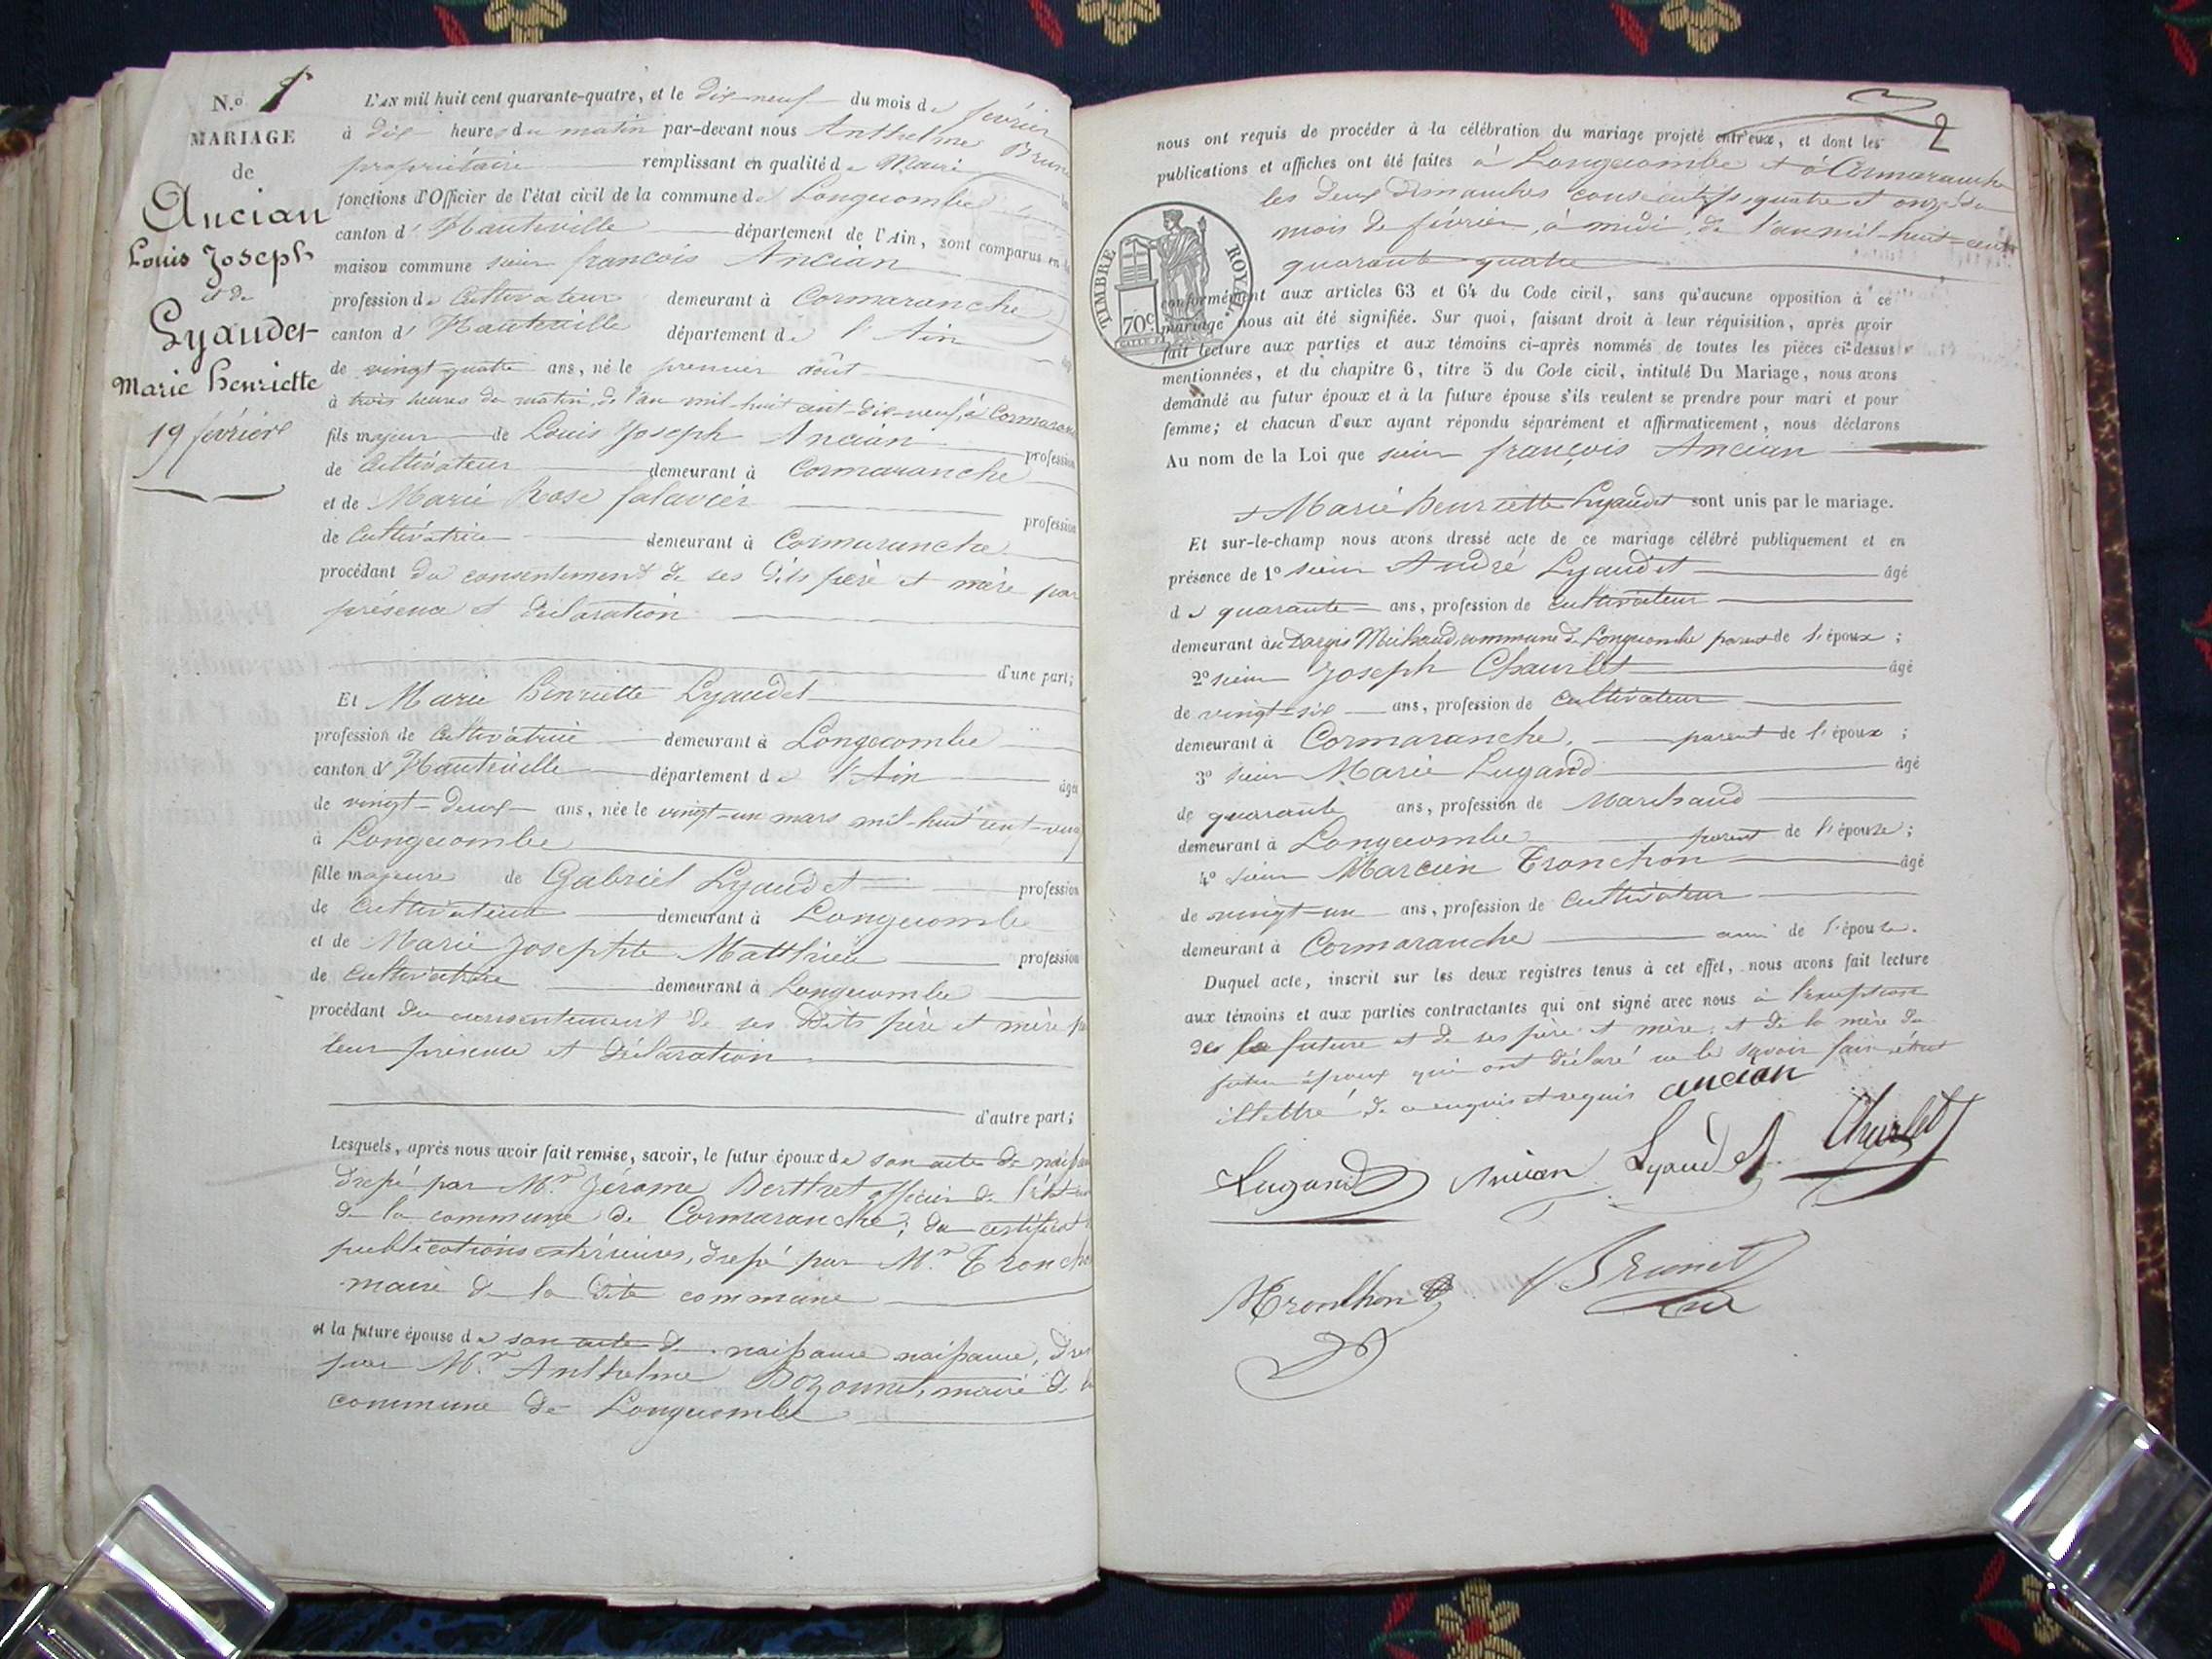 N.o 1
MARIAGE
de
Ancian
Louis Joseph
et de
Lyaudet
Marie henriette
19 février
L'AN mil huit cent quarante-quatre, et le dix-neuf du mois de février
à dix heures du matin par-devant nous Anthelme Brunet
propriétaire remplissant en qualité de Maire
fonctions d'Officier de l'état civil de la commune de Longecombe
canton d' Hauteville département de l'Ain, sont comparus en
maison commune sieur françois Ancian
profession de Cultivateur demeurant à Cormaranche
canton d' Hauteville département de l'Ain
de vingt-quatre ans, né le premier août
à trois heures du matin, de l'an mil-huit cent-dix-neuf, à Cormaran
fils majeur de Louis Joseph Ancian profession
de Cultivateur demeurant à Cormaranche
et de Marie Rose profession
de Cultivatrice demeurant à Cormaranche
procédant du consentement de ses dits père et mère par
présence et déclaration
d'une part;
Et Marie henriette Lyaudet
profession de Cultivatrice demeurant à Longecombe
canton d' Hauteville département de l'Ain âgée
de vingt-deux ans, née le vingt-un mars mil-huit cent-ving
à Longecombe
fille majeure de Gabriel Lyaudet profession
de Cultivateur demeurant à Longecombe
et de Marie Josephte Matthieu profession
de Cultivatrice demeurant à Longecombe
procédant du consentement de ses dits père et mère
leur présence et déclaration
d'autre part;
Lesquels, après nous avoir fait remise, savoir, le futur époux de son acte de
dressé par M.r Jérome Berthet officier de l'état
de la commune de Cormaranche; du certificat
publications extérieures, dressé par M.r Troncho
maire de la dite commune
et la future épouse de son acte de naissance naissance, dres
par M.r Anthelme Bozonnet, maire de la
commune de Longecombe
2
nous ont requis de procéder à la célébration du mariage projeté entr'eux, et dont les
publications et affiches ont été faites à Longecombe et à Cormaranche
les deux dimanches consécutifs quatre et onze du
mois de février, à midi, de l'an mil-huit-cent
quarante quatre
TIMBRE ROYAL
70c
conformément aux articles 63 et 64 du Code civil, sans qu'aucune opposition à ce
mariage nous ait été signifiée. Sur quoi, faisant droit à leur réquisition, après avoir
fait lecture aux parties et aux témoins ci-après nommés de toutes les pièces ci-dessus
mentionnées, et du chapitre 6, titre 5 du Code civil, intitulé Du Mariage, nous avons
demandé au futur époux et à la future épouse s'ils veulent se prendre pour mari et pour
femme; et chacun d'eux ayant répondu séparément et affirmativement, nous déclarons
Au nom de la Loi que sieur françois Ancian
et Marie henriette Lyaudet sont unis par le mariage.
Et sur-le-champ nous avons dressé acte de ce mariage célébré publiquement et en
présence de 1o sieur André Lyaudet âgé
de quarante ans, profession de cultivateur
demeurant au Michaud, commune de Longecombe parent de l'époux;
2o sieur Joseph Charlet âgé
de vingt-six ans, profession de Cultivateur
demeurant à Cormaranche, parent de l'époux;
3o sieur Marie Lugand âgé
de quarante ans, profession de Marchand
demeurant à Longecombe parent de l'épouse;
4o sieur Marcien Tronchon âgé
de vingt-un ans, profession de Cultivateur
demeurant à Cormaranche ami de l'épouse.
Duquel acte, inscrit sur les deux registres tenus à cet effet, nous avons fait lecture
aux témoins et aux parties contractantes qui ont signé avec nous à l'exception
de la future et de ses père et mère, et de la mère du
futur époux qui ont déclaré ne le savoir faire étant
illettré de ce enquis et requis ancian
Lugand Ancian Lyaudet Charlet
Tronchon Brunet